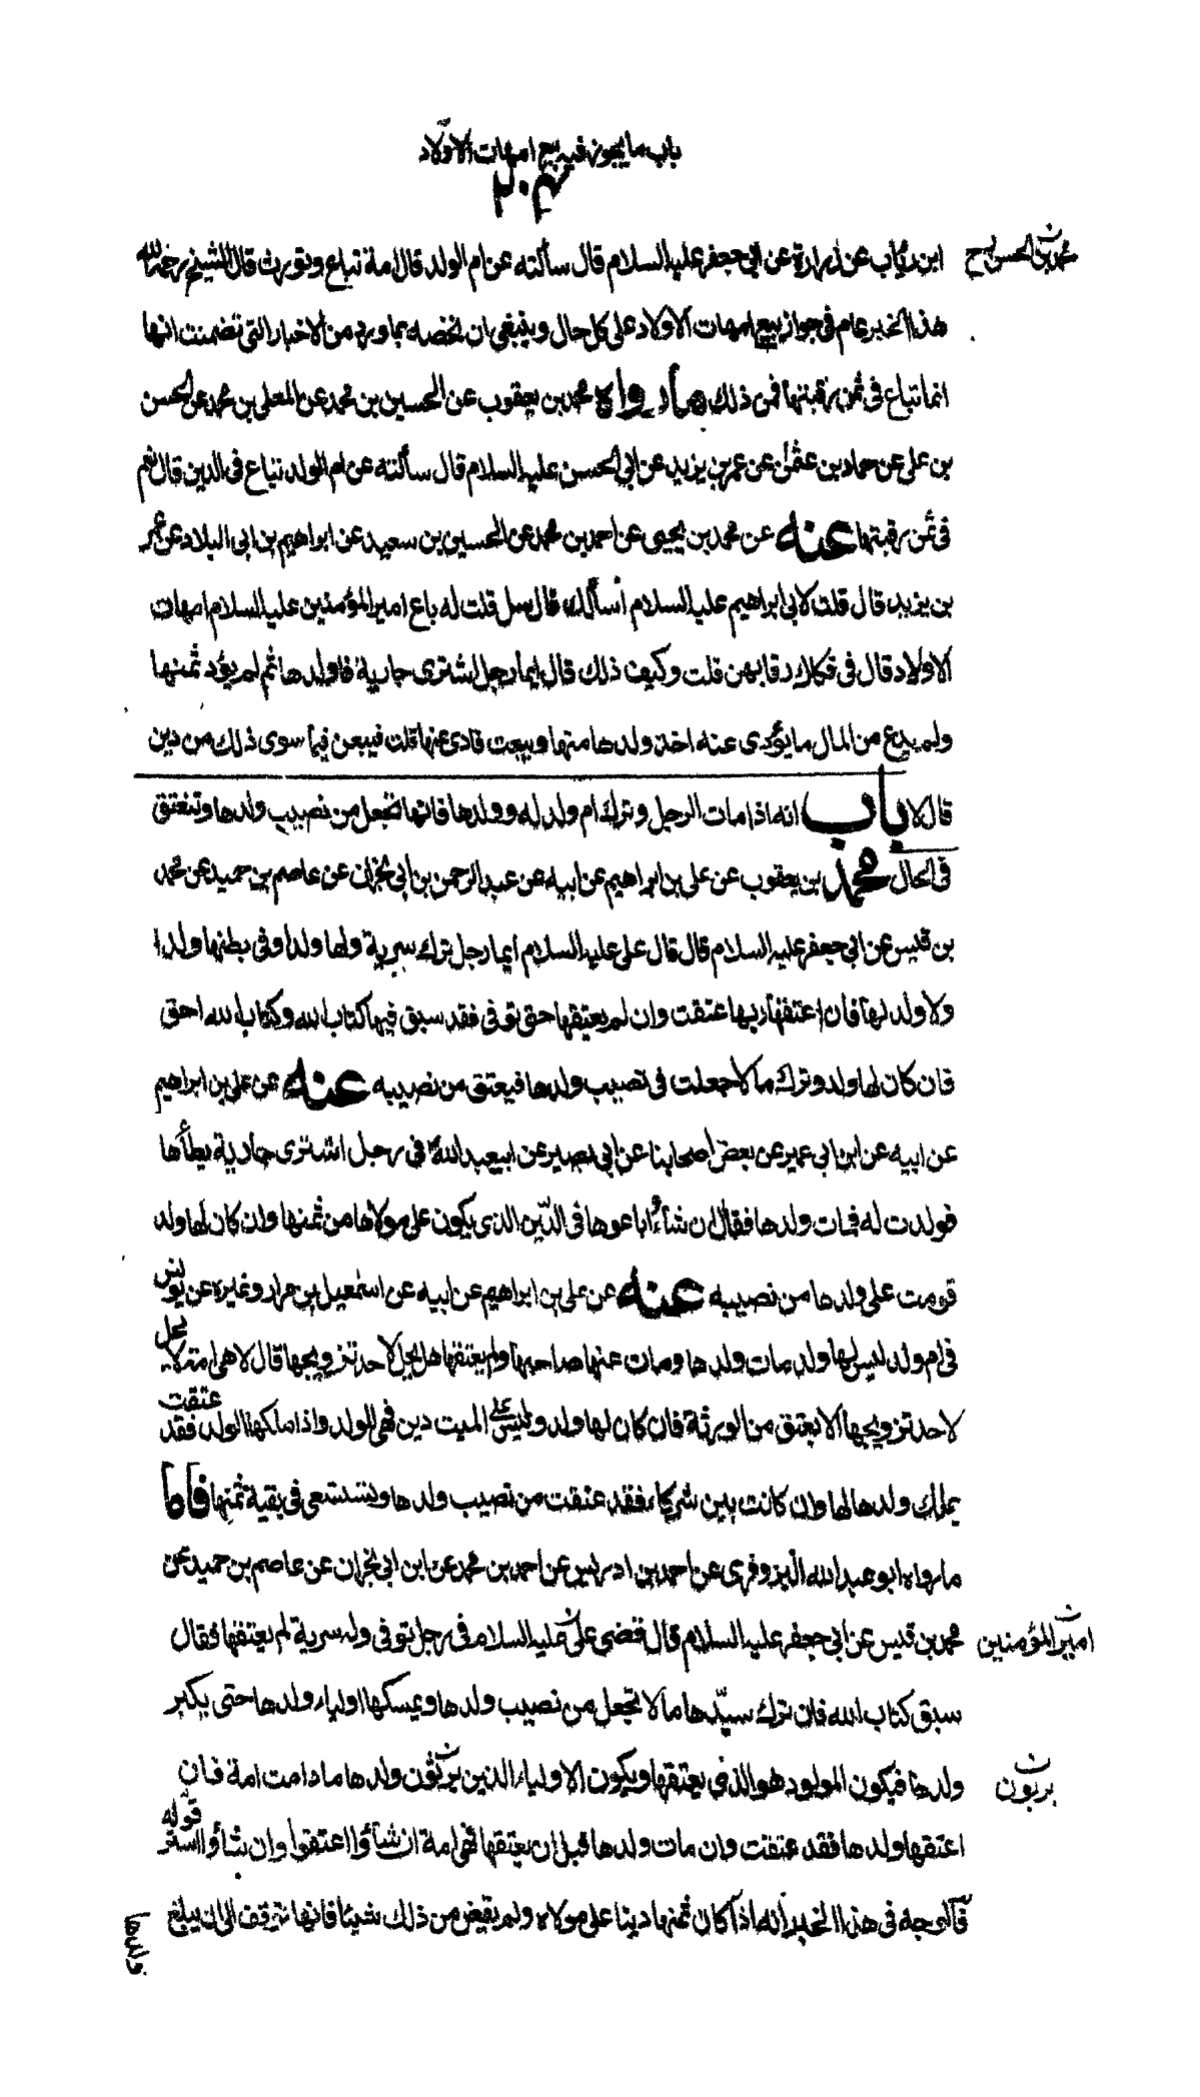 باب ما يجوز فيه بيع امهات الاولاد
محمد بن الحسن ن ح
ابن رئاب عن زرارة عن ابي جعفر عليه السلام قال سألته عن ام الولد قال امة تباع وتورث قال الشيخ رحمه الله
هذا الخبر عام في جواز بيع امهات الاولاد على كل حال وينبغي ان نخصه بما ورد من الاخبار التي تضمنت انها
انما تباع في ثمن رقبتها فمن ذلك ما رواه محمد بن يعقوب عن الحسين بن محمد عن المعلى بن محمد عن الحسن
بن علي عن حماد بن عثمن عن عمر بن يزيد عن ابي الحسن عليه السلام قال سألته عن ام الولد تباع في الدين قال نعم
في ثمن رقبتها عنه عن محمد بن يحيى عن احمد بن محمد عن الحسين بن سعيد عن ابراهيم بن ابي البلاد عن عمر
بن يزيد قال قلت لابي ابراهيم عليه السلام أسألك قال سل قلت له باع امير المؤمنين عليه السلام امهات
الاولاد قال في فكاك رقابهن قلت وكيف ذلك قال ايما رجل اشترى جارية فاولدها ثم لم يؤد ثمنها
ولم يدع من المال ما يؤدى عنه اخذ ولدها منها وبيعت فادى عنها قلت فيبعن فيما سوى ذلك من دين
قال لا باب انه اذا مات الرجل وترك ام ولد له وولدها فانها تجعل من نصيب ولدها وتنعتق
في الحال محمد بن يعقوب عن علي بن ابراهيم عن ابيه عن عبد الرحمن بن ابي نجران عن عاصم بن حميد عن محمد
بن قيس عن ابي جعفر عليه السلام قال قال علي عليه السلام أيما رجل ترك سرية ولها ولد او في بطنها ولد ا
ولا ولد لها فان اعتقها ربها عتقت وان لم يعتقها حتى توفى فقد سبق فيها كتاب الله وكتاب الله احق
فان كان لها ولد وترك مالا جعلت في نصيب ولدها فيعتق من نصيبه عنه عن علي بن ابراهيم
عن ابيه عن ابن ابي عمير عن بعض اصحابنا عن ابي بصير عن ابي عبد الله ع في رجل اشترى جارية يطأها
فولدت له فمات ولدها فقال ان شاؤا باعوها في الدّين الذي يكون على مولاها من ثمنها وان كان لها ولد
قومت على ولدها من نصيبه عنه عن علي بن ابراهيم عن ابيه عن اسمعيل بن مرار وغيره عن يونس
في ام ولد ليس لها ولد مات ولدها ومات عنها صاحبها ولم يعتقها هل يحل لاحد تزويجها قال لا هي امة لا يحل
لاحد تزويجها الا بعتق من الورثة فان كان لها ولد وليس على الميت دين فهي للولد واذا ملكها الولد فقد عتقت
يملك ولدها لها وان كانت بين شركاء فقد عتقت من نصيب ولدها وتستسعى في بقية ثمنها فاما
ما رواه ابو عبد الله البزوفري عن احمد بن ادريس عن احمد بن محمد عن ابن ابي نجران عن عاصم بن حميد عن
امير المؤمنين ن
محمد بن قيس عن ابي جعفر عليه السلام قال قضى علي ن عليه السلام في رجل توفى وله سرية لم يعتقها فقال
سبق كتاب الله فان ترك سيّدها مالا تجعل من نصيب ولدها ويمسكها اولياء ولدها حتى يكبر
يربون ن
ولدها فيكون المولود هو الذي يعتقها ويكون الاولياء الذين يرثون ولدها ما دامت امة فان
اعتقها ولدها فقد عتقت وان مات ولدها قبل ان يعتقها فهي امة ان شاؤا اعتقوا وان شاؤا استرقوا قوله
فالوجه في هذا الخبر أنه اذا كان ثمنها دينا على مولاه ولم يقض من ذلك شيئا فانها توقف الى ان يبلغ
ولدها